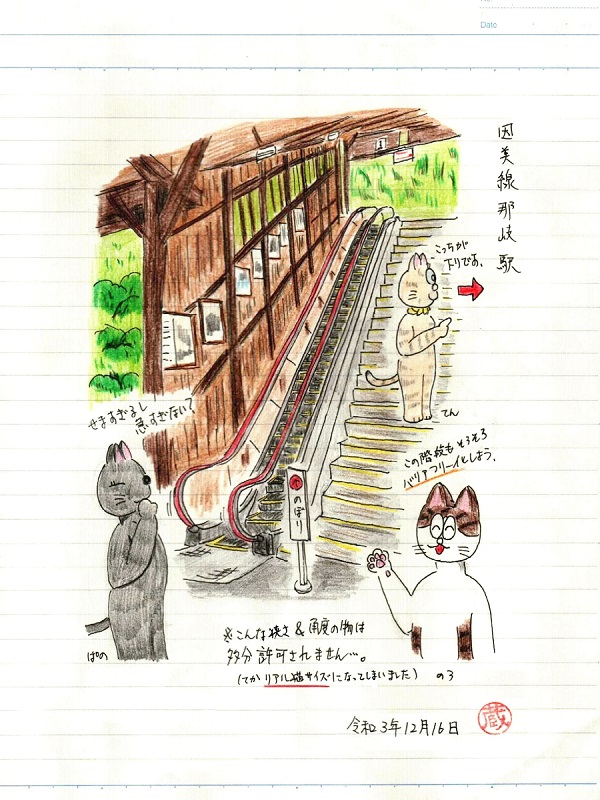 Date
因美線那岐駅
こっちが
下りです。
てん
せますぎるし
急すぎない？
この階段もそろそろ
バリアフリー化しよう。
のぼり
ぱの
※こんな狭さ&角度の物は
多分許可されません…。
(てかリアル猫サイズになってしまいました)
のろ
令和3年12月16日